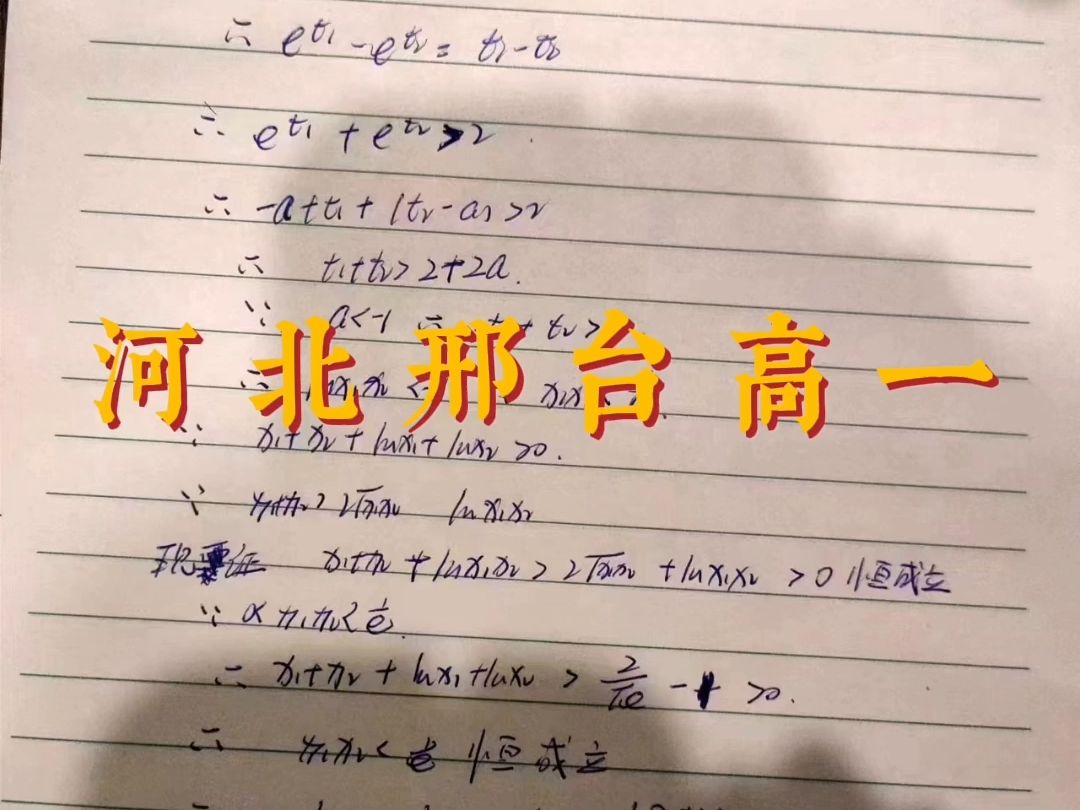 ∴ e^t₁ - e^t₂ = t₁ - t₂
∴ e^t₁ + e^t₂ > 2
∴ -a + t₁ + (t₂ - a) > 2
∴ t₁ + t₂ > 2 + 2a.
∵ a < -1 ∴ t₂ >
河北邢台高一
∵ x₁ + x₂ + lnx₁ + lnx₂ > 0.
∵ x₁+x₂ > 2√x₁x₂ lnx₁x₂
证 x₁+x₂ + lnx₁x₂ > 2√x₁x₂ + lnx₁x₂ > 0 恒成立
∵ x₁x₂ < 1/e.
∴ x₁+x₂ + lnx₁ + lnx₂ > 2/√e - 1 > 0.
∴ x₁x₂ < 恒成立